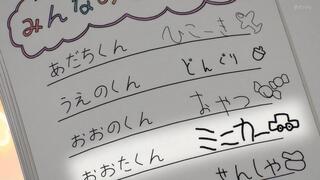 みんなの
あだちくん ひこーき
うえのくん どんぐり
おおのくん おやつ
おおたくん ミニカー
せんしゃ